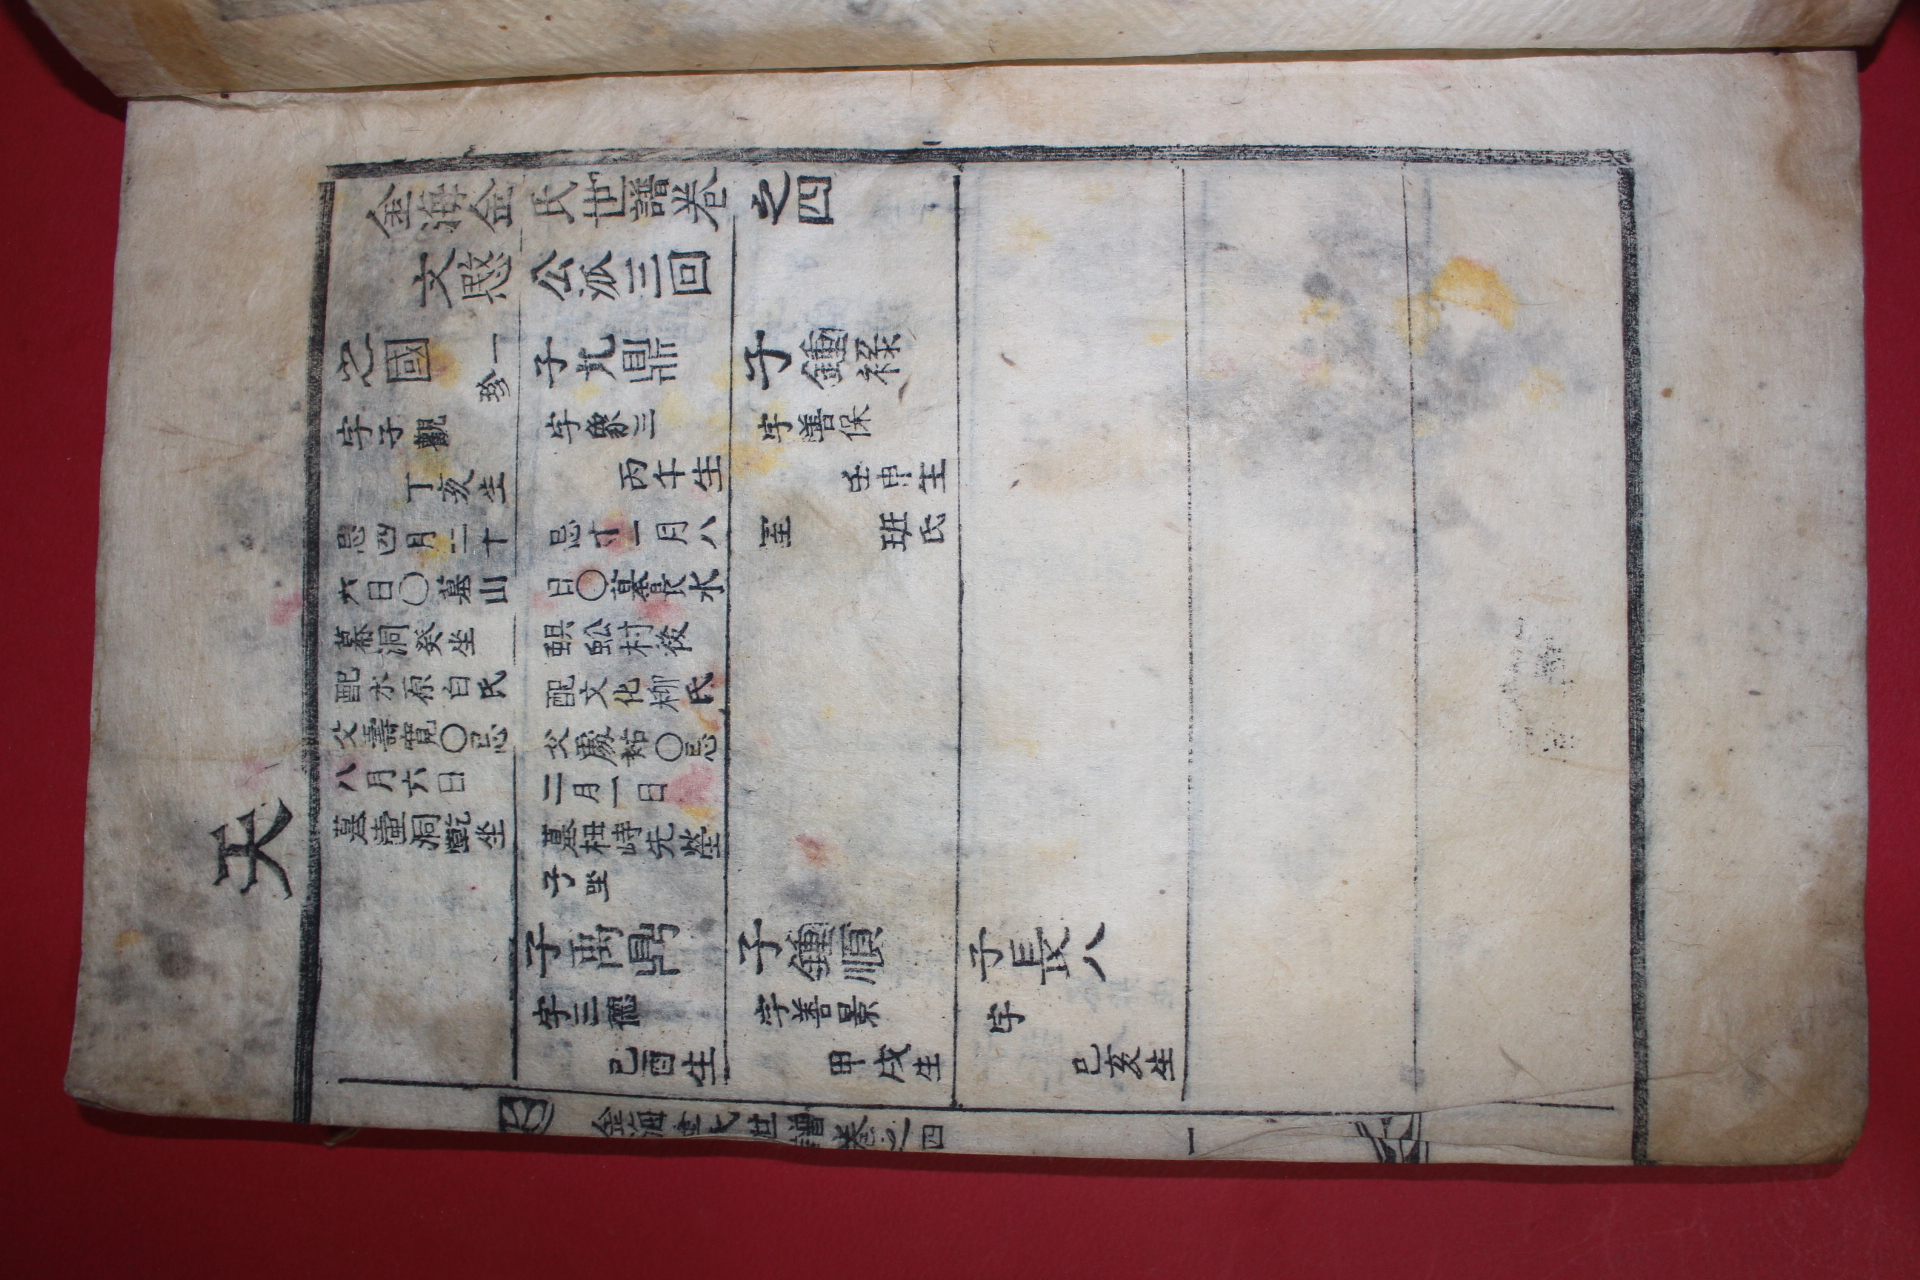 天
金海金氏世譜卷之四
文愍公派三回
之國
一
珍
字子觀
丁亥生
忌四月二十
六日〇墓山
幕洞癸坐
配水原白氏
父壽寬〇忌
八月六日
墓壷洞乾坐
子九鼎
字象三
丙午生
忌十一月八
日〇墓長水
蜈蚣村後
配文化柳氏
父處〇忌
二月一日
墓峙先塋
子坐
子禹鼎
字三德
己酉生
子鍾祿
字善保
壬申生
室
班氏
子鍾順
字善景
甲戌生
子長八
字
己亥生
金海金氏世譜卷之四
一